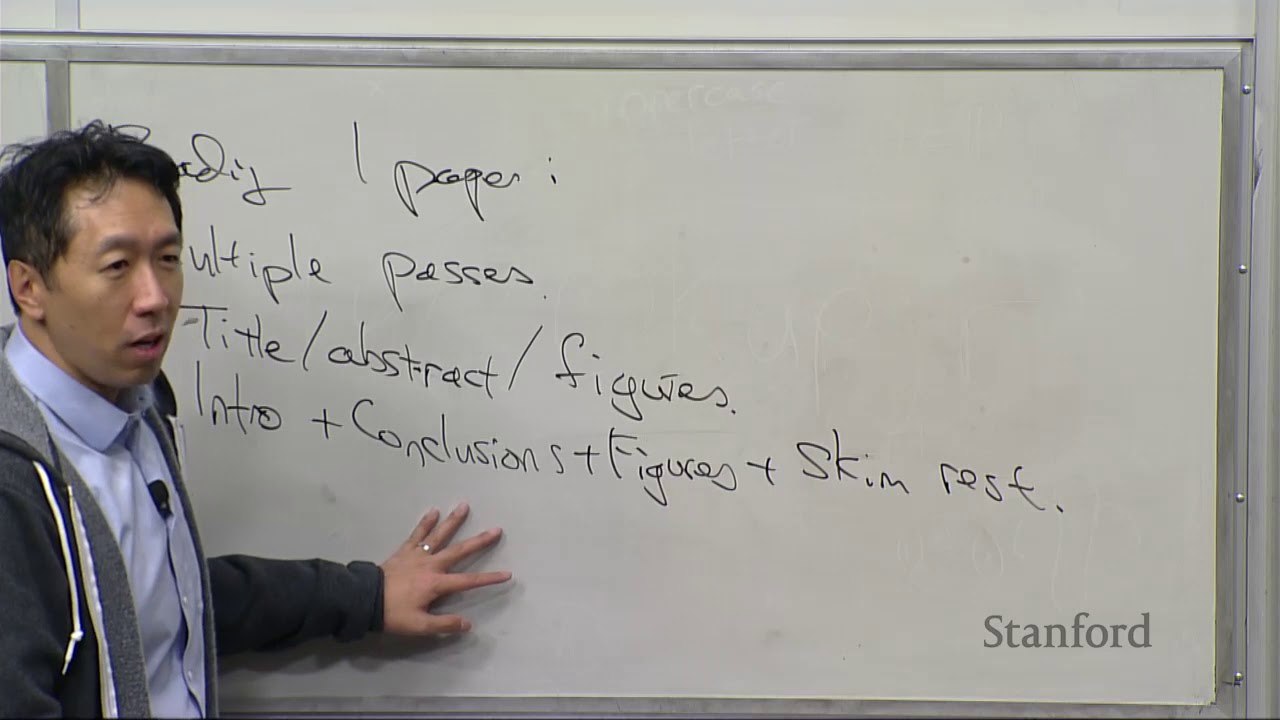 Reading 1 paper:
ultiple passes.
Title/abstract/figures.
Intro + Conclusions + Figures + Skim rest.
Stanford